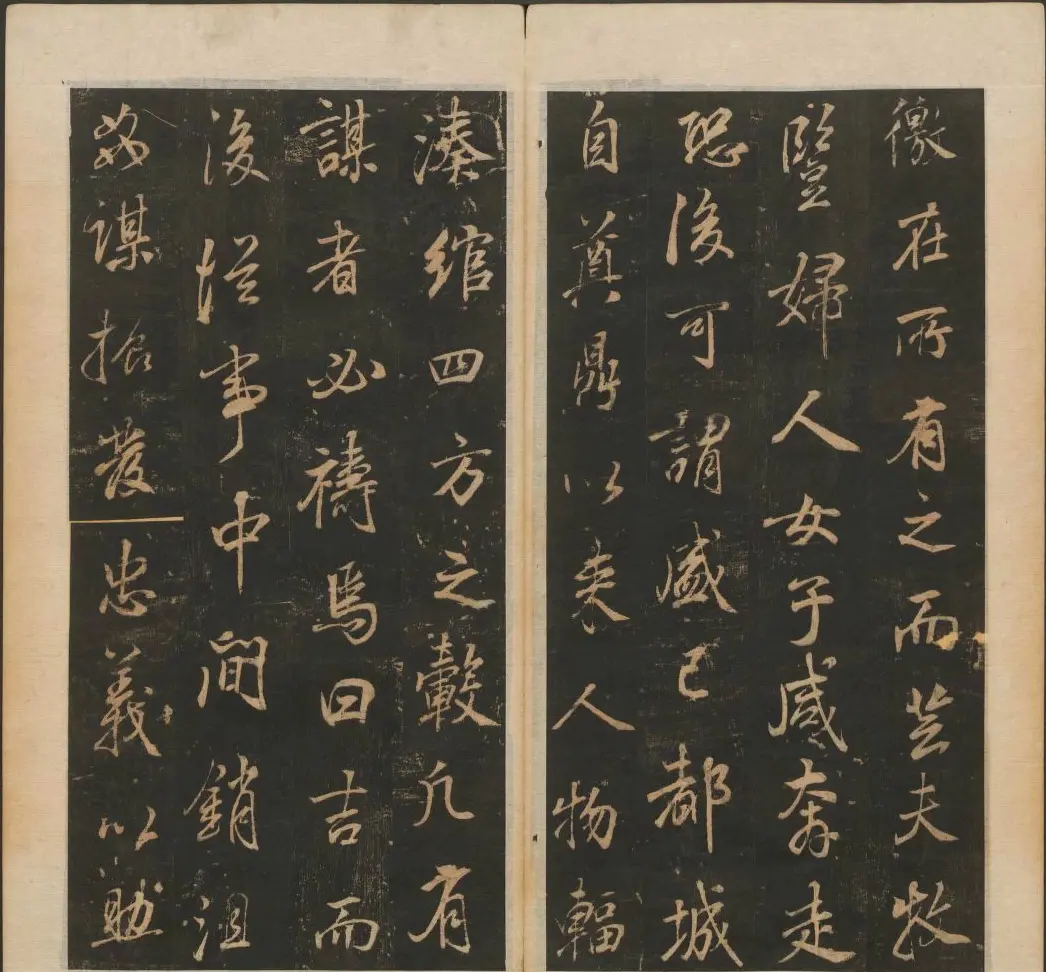 徼在所有之而芸夫牧
豎婦人女子咸奔走
恐後可謂盛已都城
自奠鼎以來人物輻
湊綰四方之轂凡有
謀者必禱焉曰吉而
後從事中間銷沮
姦謀振發忠義以助